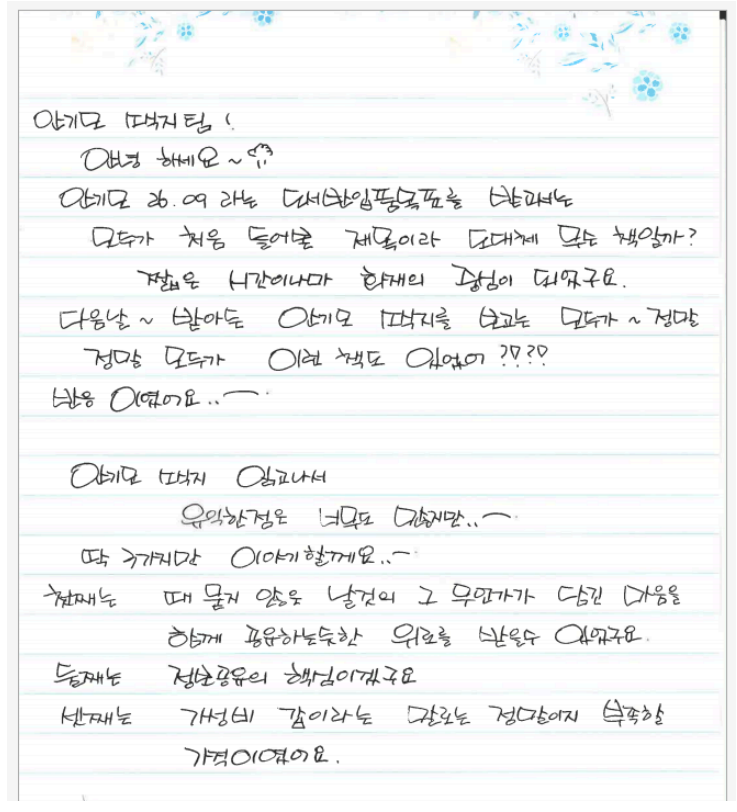 안기모 따박지 팀!
안녕 하세요~
안기모 26.09 라는 대세반입품목표를 받고서는
모두가 처음 들어본 제목이라 도대체 무슨 책일까?
짧은 시간이나마 화제의 중심이 되었구요.
다음날~ 받아든 안기모 따박지를 보고는 모두가~ 정말
정말 모두가 이런 책도 있었어????
반응 이였어요..
안기모 따박지 읽고나서
유익한점은 너무도 많지만..
딱 3가지만 이야기할께요..
첫째는 때 묻지 않은 날것의 그 무언가가 담긴 마음을
함께 공유하는듯한 위로를 받을수 있었구요.
둘째는 정보공유의 핵심이겠구요
셋째는 가성비 갑이라는 말로는 정말이지 부족할
가격이였어요.